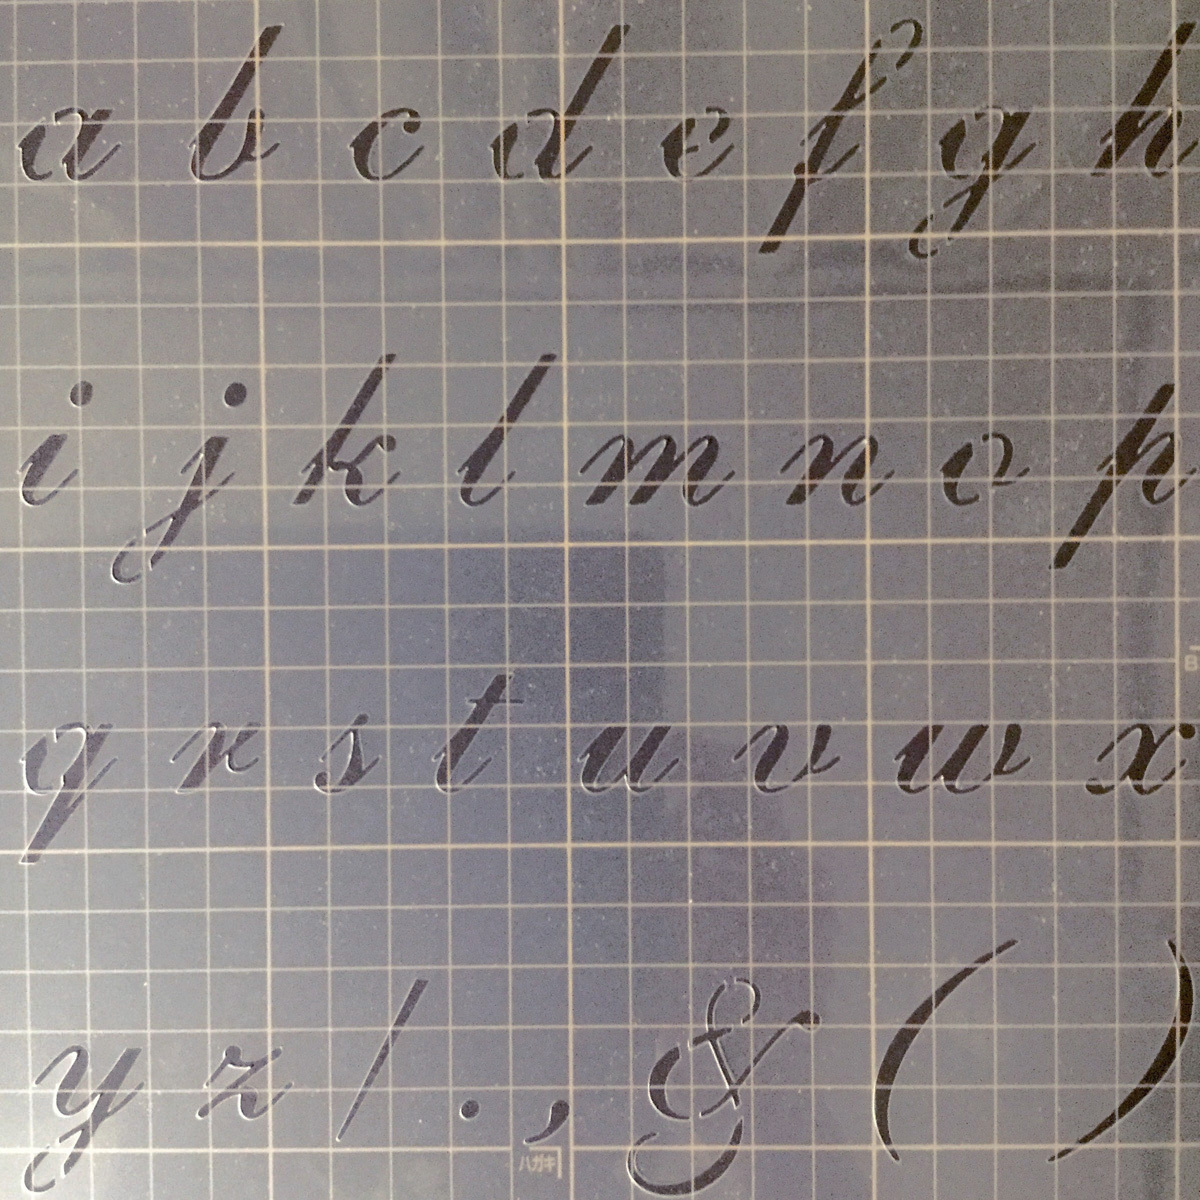 a b c d e f g h
i j k l m n o p
q r s t u v w x
y z / . , & ( )
ハガキ